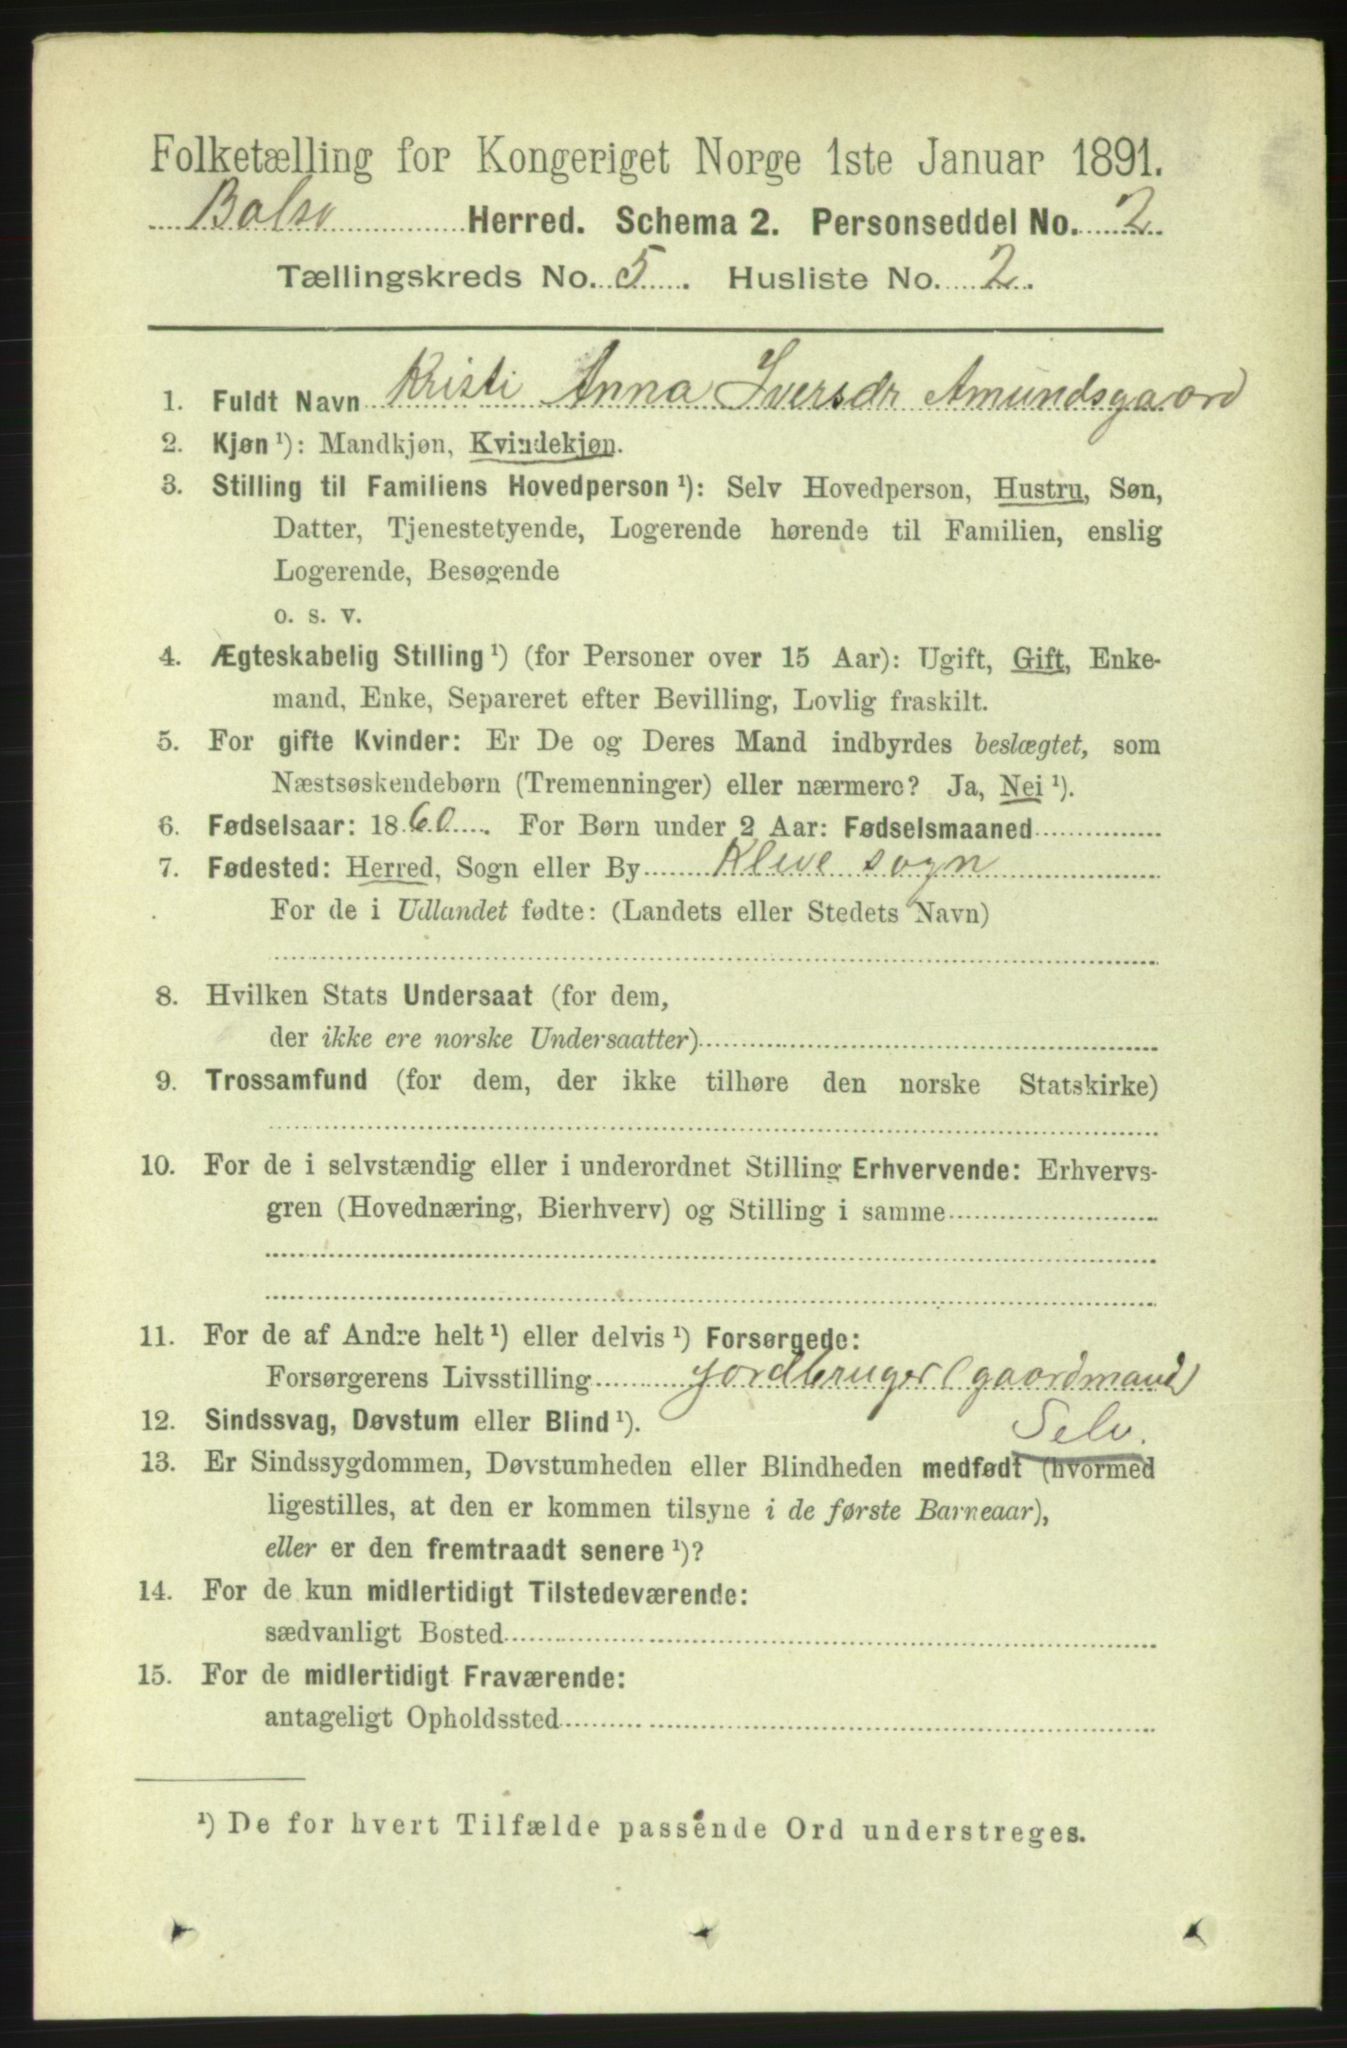 Folketælling for Kongeriget Norge 1ste Januar 1891.
Bolsø Herred. Schema 2. Personseddel No. 2
Tællingskreds No. 5. Husliste No. 2.
1. Fuldt Navn Kristi Anna Iversdr Amundsgaard
2. Kjøn ¹): Mandkjøn, Kvindekjøn.
3. Stilling til Familiens Hovedperson ¹): Selv Hovedperson, Hustru, Søn,
Datter, Tjenestetyende, Logerende hørende til Familien, enslig
Logerende, Besøgende
o. s. v.
4. Ægteskabelig Stilling ¹) (for Personer over 15 Aar): Ugift, Gift, Enke-
mand, Enke, Separeret efter Bevilling, Lovlig fraskilt.
5. For gifte Kvinder: Er De og Deres Mand indbyrdes beslægtet, som
Næstsøskendebørn (Tremenninger) eller nærmere? Ja, Nei ¹).
6. Fødselsaar: 1860. For Børn under 2 Aar: Fødselsmaaned
7. Fødested: Herred, Sogn eller By Kleve sogn
For de i Udlandet fødte: (Landets eller Stedets Navn)
8. Hvilken Stats Undersaat (for dem,
der ikke ere norske Undersaatter)
9. Trossamfund (for dem, der ikke tilhøre den norske Statskirke)
10. For de i selvstændig eller i underordnet Stilling Erhvervende: Erhvervs-
gren (Hovednæring, Bierhverv) og Stilling i samme
11. For de af Andre helt ¹) eller delvis ¹) Forsørgede:
Forsørgerens Livsstilling jordbruger (gaardmand)
Selv.
12. Sindssvag, Døvstum eller Blind ¹).
13. Er Sindssygdommen, Døvstumheden eller Blindheden medfødt (hvormed
ligestilles, at den er kommen tilsyne i de første Barneaar),
eller er den fremtraadt senere ¹)?
14. For de kun midlertidigt Tilstedeværende:
sædvanligt Bosted
15. For de midlertidigt Fraværende:
antageligt Opholdssted
¹) De for hvert Tilfælde passende Ord understreges.